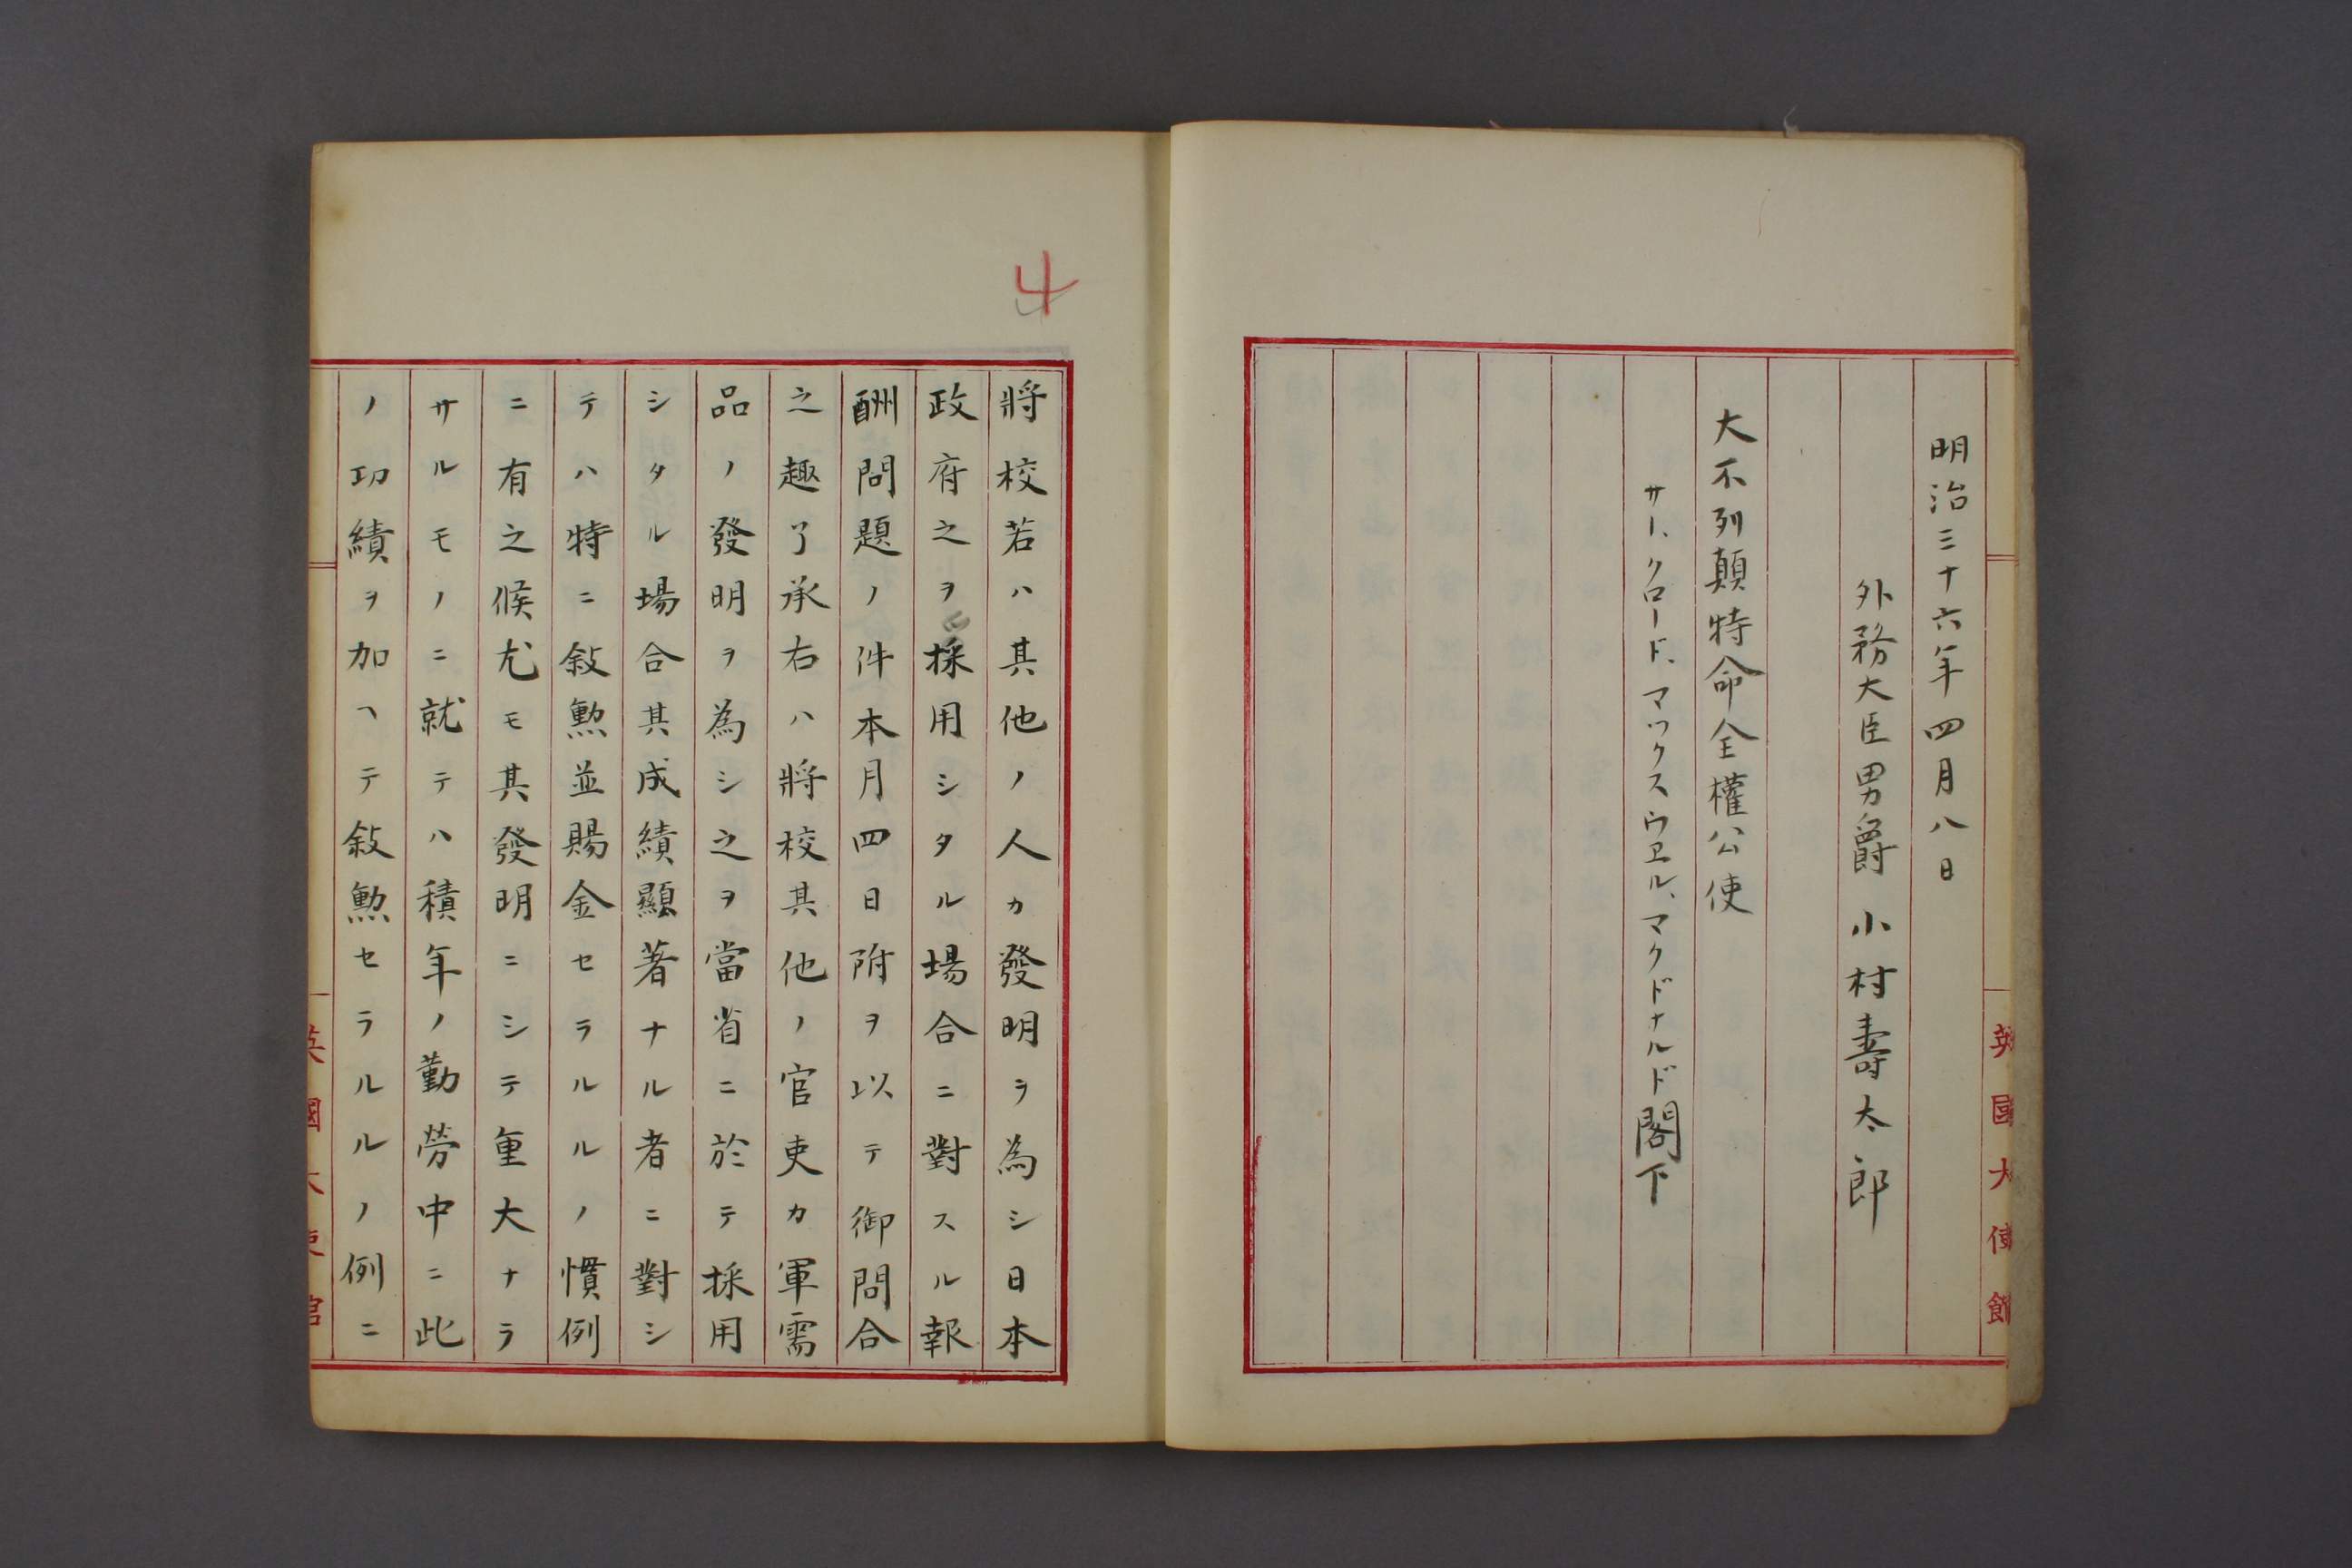 英國大使館
明治三十六年四月八日
外務大臣男爵 小村壽太郎
大不列顛特命全權公使
サー、クロード、マックスウヱル、マクドナルド閣下
4
將校若ハ其他ノ人カ發明ヲ為シ日本
政府之ヲ採用シタル場合ニ對スル報
酬問題ノ件本月四日附ヲ以テ御問合
之趣了承右ハ將校其他ノ官吏カ軍需
品ノ發明ヲ為シ之ヲ當省ニ於テ採用
シタル場合其成績顯著ナル者ニ對シ
テハ特ニ敍勲並賜金セラルルノ慣例
ニ有之候尤モ其發明ニシテ重大ナラ
サルモノニ就テハ積年ノ勤勞中ニ此
ノ功績ヲ加ヘテ敍勲セラルルノ例ニ
英國大使館